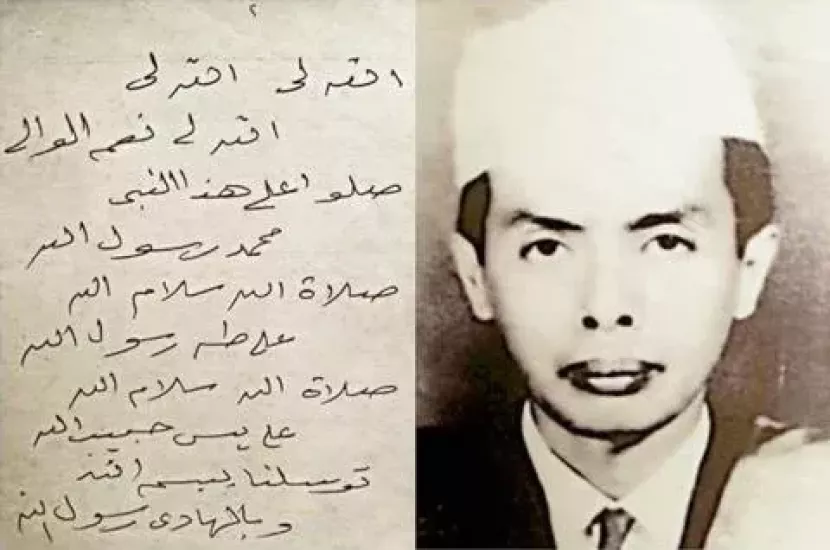 ٢
الله لى الله لى
الله لي نعم الوالى
صلوا على هذا النبى
محمد رسول الله
صلاة الله سلام الله
على طه رسول الله
صلاة الله سلام الله
على يس حبيب الله
توسلنا ببسم الله
وبالهادى رسول الله